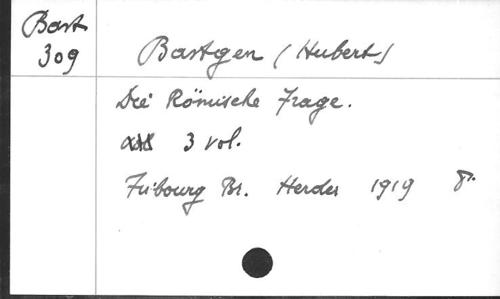 Bast
309
Bastgen (Hubert)
Die Römische Frage.
3 vol.
Fribourg Br. Herder 1919 8°.